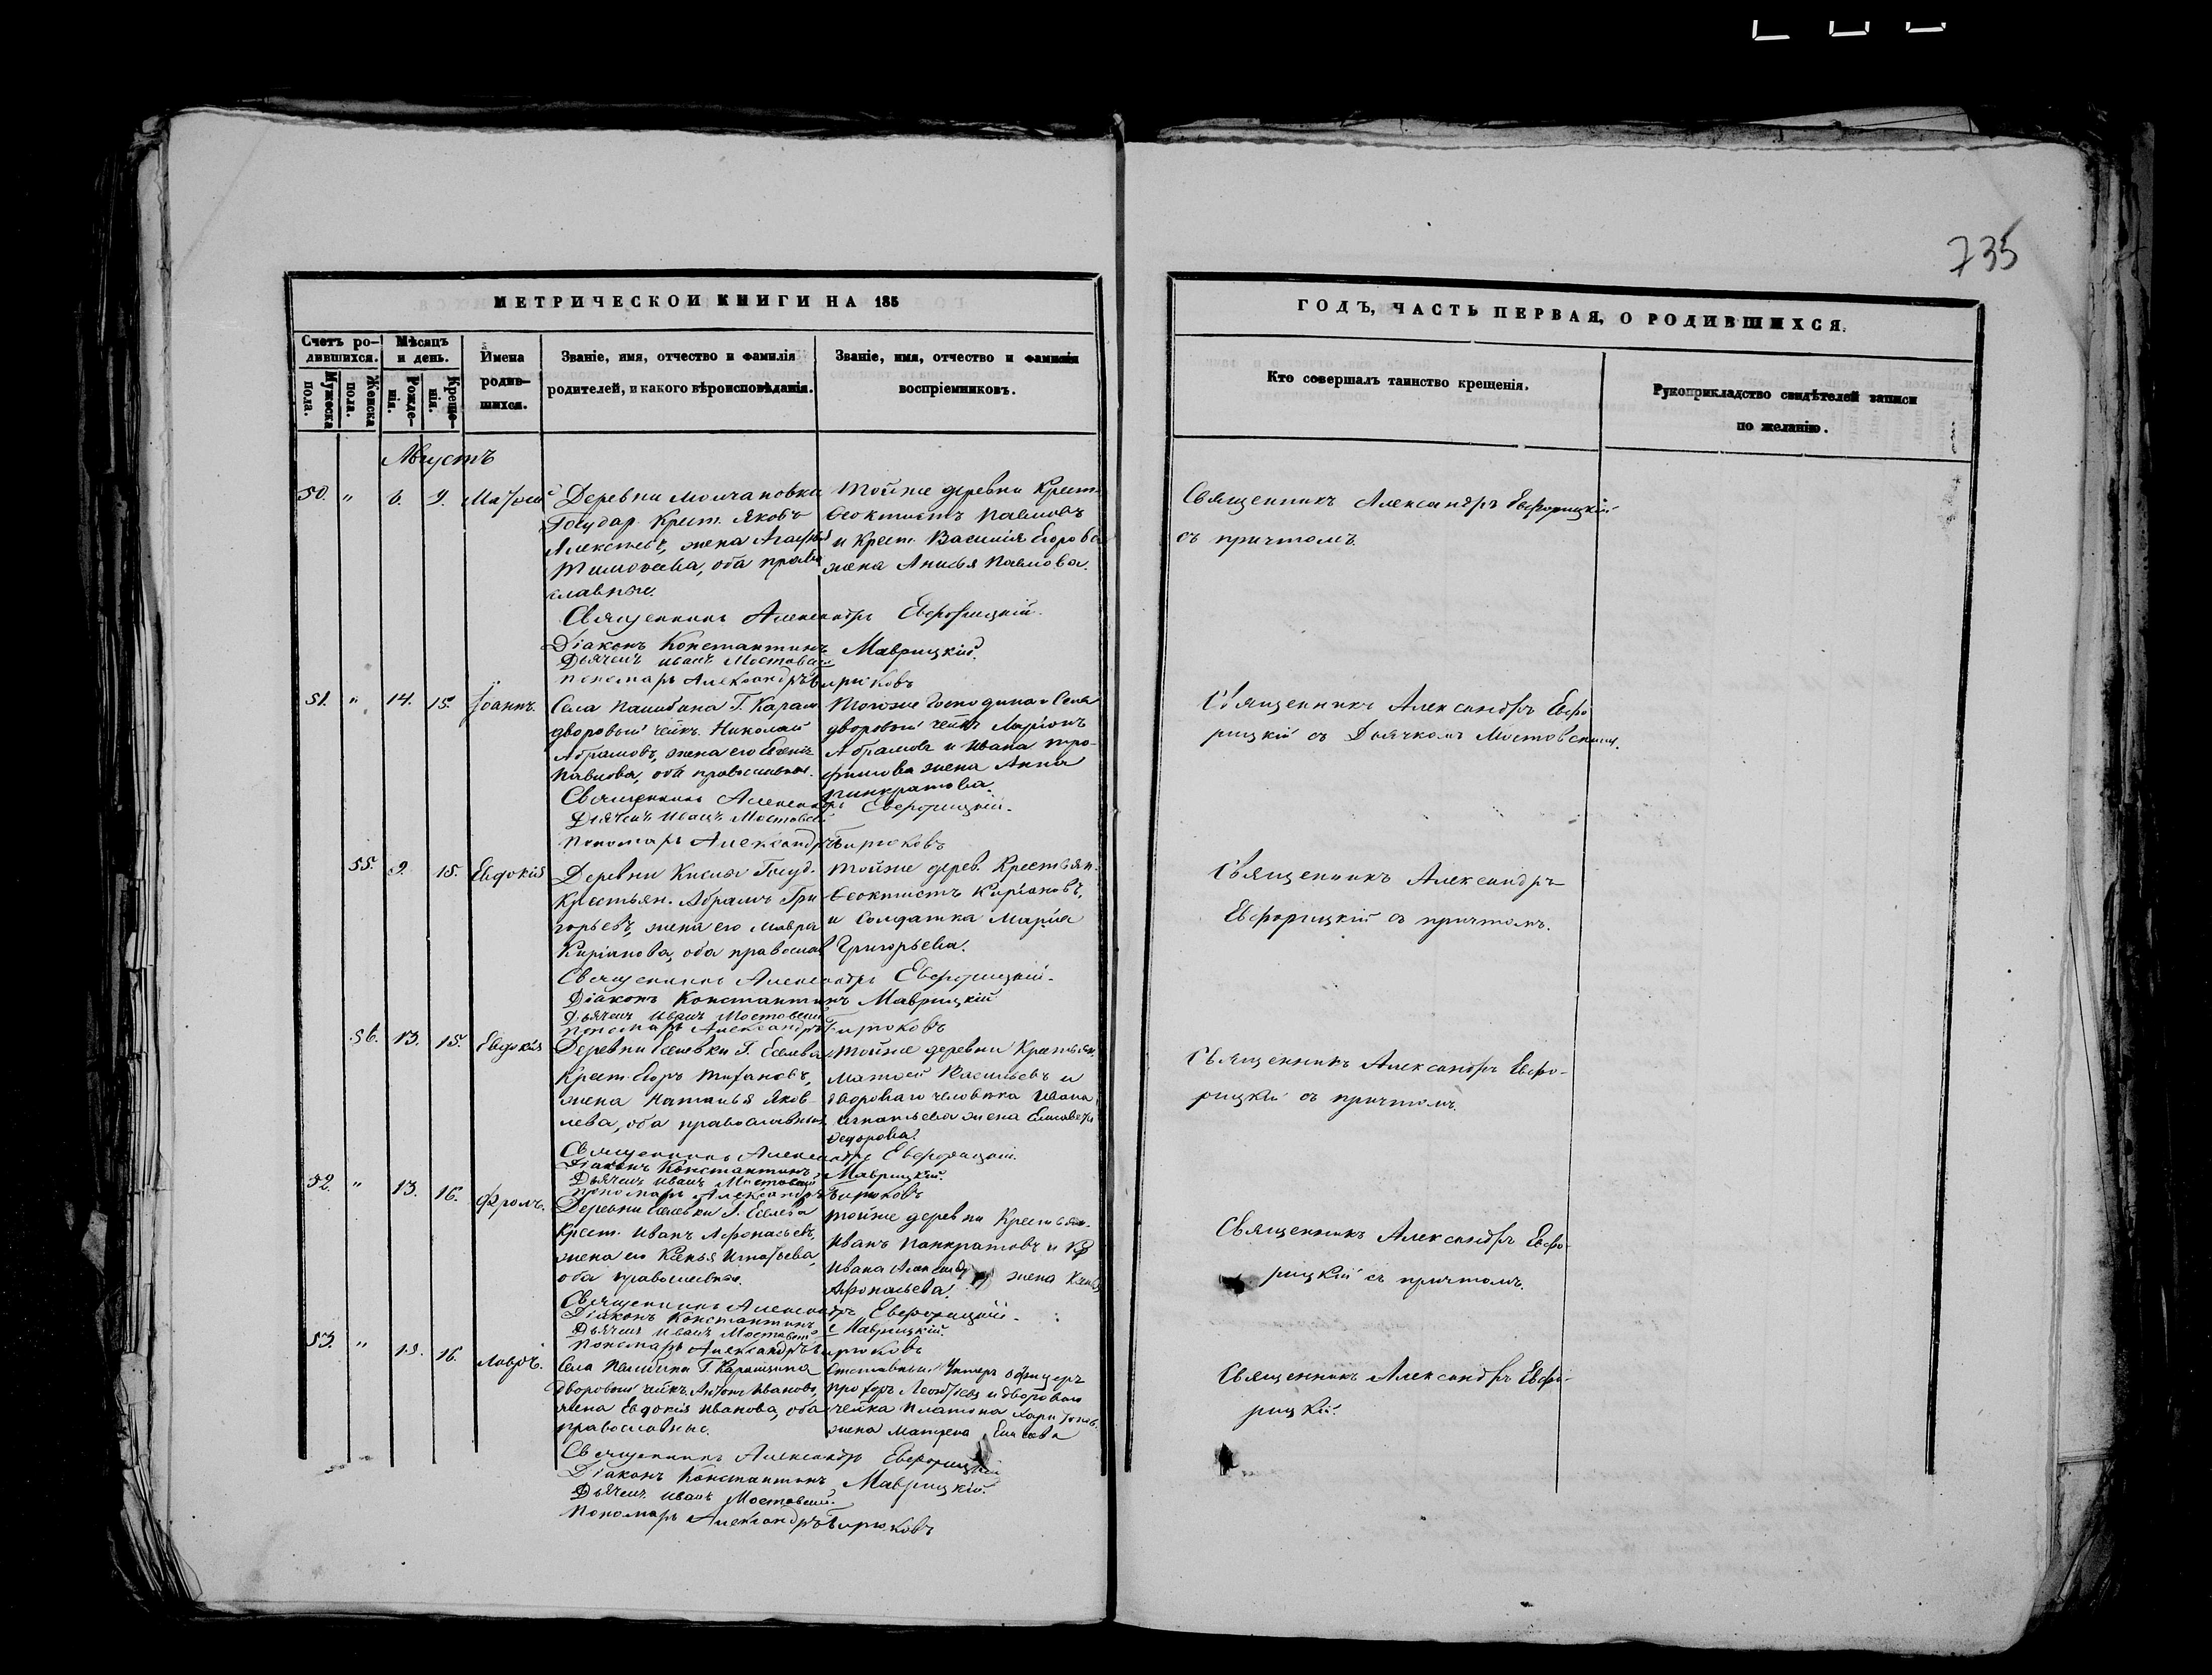 735
МЕТРИЧЕСКОЙ КНИГИ НА 185
ГОДЪ, ЧАСТЬ ПЕРВАЯ, О РОДИВШИХСЯ.
Счетъ ро-
дившихся.
Мужеска
пола.
Женска
пола.
Мѣсяцъ
и день.
Рожде-
нія.
Креще-
нія.
Имена
родив-
шихся.
Званіе, имя, отчество и фамилія
родителей, и какого вѣроисповѣданія.
Званіе, имя, отчество и фамилія
воспріемниковъ.
Кто совершалъ таинство крещенія.
Рукоприкладство свидѣтелей записи
по желанію.
Августъ
50. " 6. 9.
Деревни Молчановки
Государ. Крест. Яковъ
Алексѣевъ, жена Агафья
Тимоѳеева, оба право
славные.
Тойже деревни Крест.
Ѳеоктистъ Павловъ
и Крест. Василія Егорова
жена Анисья Павлова.
Священникъ Александръ Евфорицкій
съ причтомъ.
Священникъ Александръ Евфорицкій.
Діаконъ Константинъ Маврицкій.
Дьячекъ Иванъ Мостовскій
Пономарь Александръ Бирюковъ
51. " 14. 15. Іоаннъ.
Села Пашибина Г. Карам
дворовый челкъ. Николай
Абрамовъ, жена его
Павлова, оба православные.
Тогоже Господина и Села
дворовый челкъ Ларіонъ
Абрамовъ и Ивана Тро-
фимова жена Анна
Панкратова.
Священникъ Александръ Евфо
рицкій съ Дьячкомъ Мостовскимъ.
Священникъ Александръ Евфорицкій.
Дьячекъ Иванъ Мостовскій
Пономарь Александръ Бирюковъ
55. 9. 15. Евдокія
Деревни Госуд.
Крестьян. Абрамъ Гри
горьевъ, жена его Мавра
Киріанова, оба православ
Тойже дерев. Крестьян.
Ѳеоктистъ Киріановъ,
и Солдатка Марія
Григорьева.
Священникъ Александръ
Евфорицкій съ причтомъ.
Священникъ Александръ Евфорицкій.
Діаконъ Константинъ Маврицкій
Дьячекъ Иванъ Мостовскій
Пономарь Александръ Бирюковъ
56. 13. 15. Евдокія
Деревни Еселевки Г. Еселева
Крест. Егоръ
жена Наталья Яков-
лева, оба православные
Тойже деревни Крестьян.
Матѳей Васильевъ и
двороваго человѣка Ивана
Игнатьева жена Елисавета
Ѳедорова.
Священникъ Александръ Евфо-
рицкій съ причтомъ.
Священникъ Александръ Евфорицкій.
Діаконъ Константинъ Маврицкій.
Дьячекъ Иванъ Мостовскій
Пономарь Александръ Бирюковъ
52. " 13. 16. Фролъ.
Деревни Еселевки Г. Еселева
Крест. Иванъ Афонасьевъ,
жена его Ксенья Игнатьева,
оба православные.
Тойже деревни Крестьян.
Иванъ Панкратовъ и Кр
Ивана жена
Афонасьева.
Священникъ Александръ Евфо-
рицкій съ причтомъ.
Священникъ Александръ Евфорицкій.
Діаконъ Константинъ Маврицкій.
Дьячекъ Иванъ Мостовскій
Пономарь Александръ Бирюковъ
53. " 15. 16. Лавръ.
Села Пашибина Г. Карамзина
дворовый челкъ. Антонъ Ивановъ,
жена Евдокія Иванова, оба
православные.
Отставный Унтеръ офицеръ
Прохоръ Леонтьевъ и двороваго
челка Платона Харитонов.
жена Матрена
Священникъ Александръ Евфо-
рицкій.
Священникъ Александръ Евфорицкій
Діаконъ Константинъ Маврицкій.
Дьячекъ Иванъ Мостовскій.
Пономарь Александръ Бирюковъ